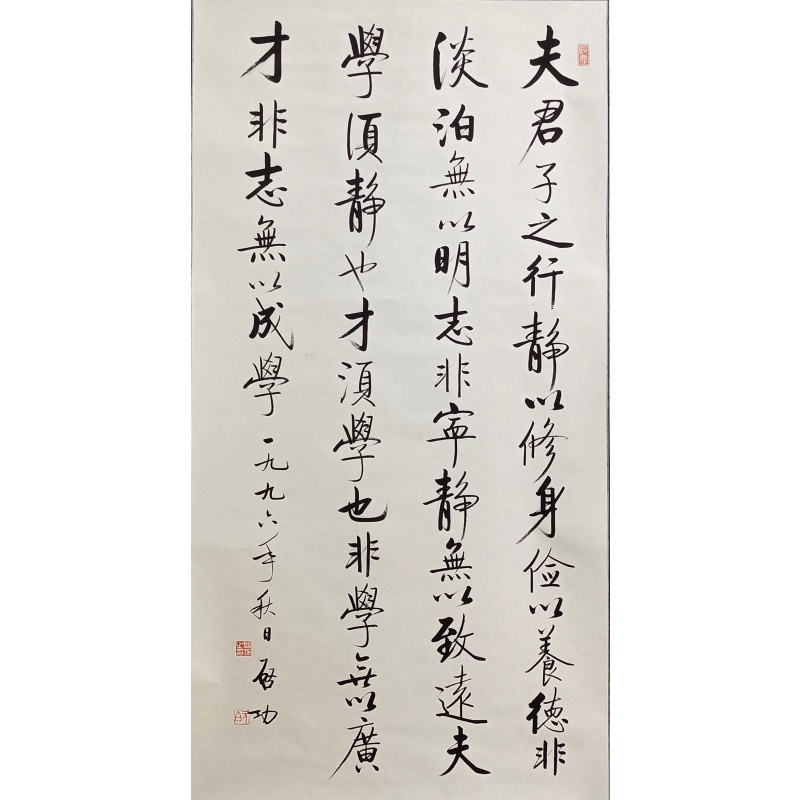 夫君子之行静以修身俭以養德非
淡泊無以明志非寧静無以致遠夫
學須静也才須學也非學無以廣
才非志無以成學一九九六年秋日启功